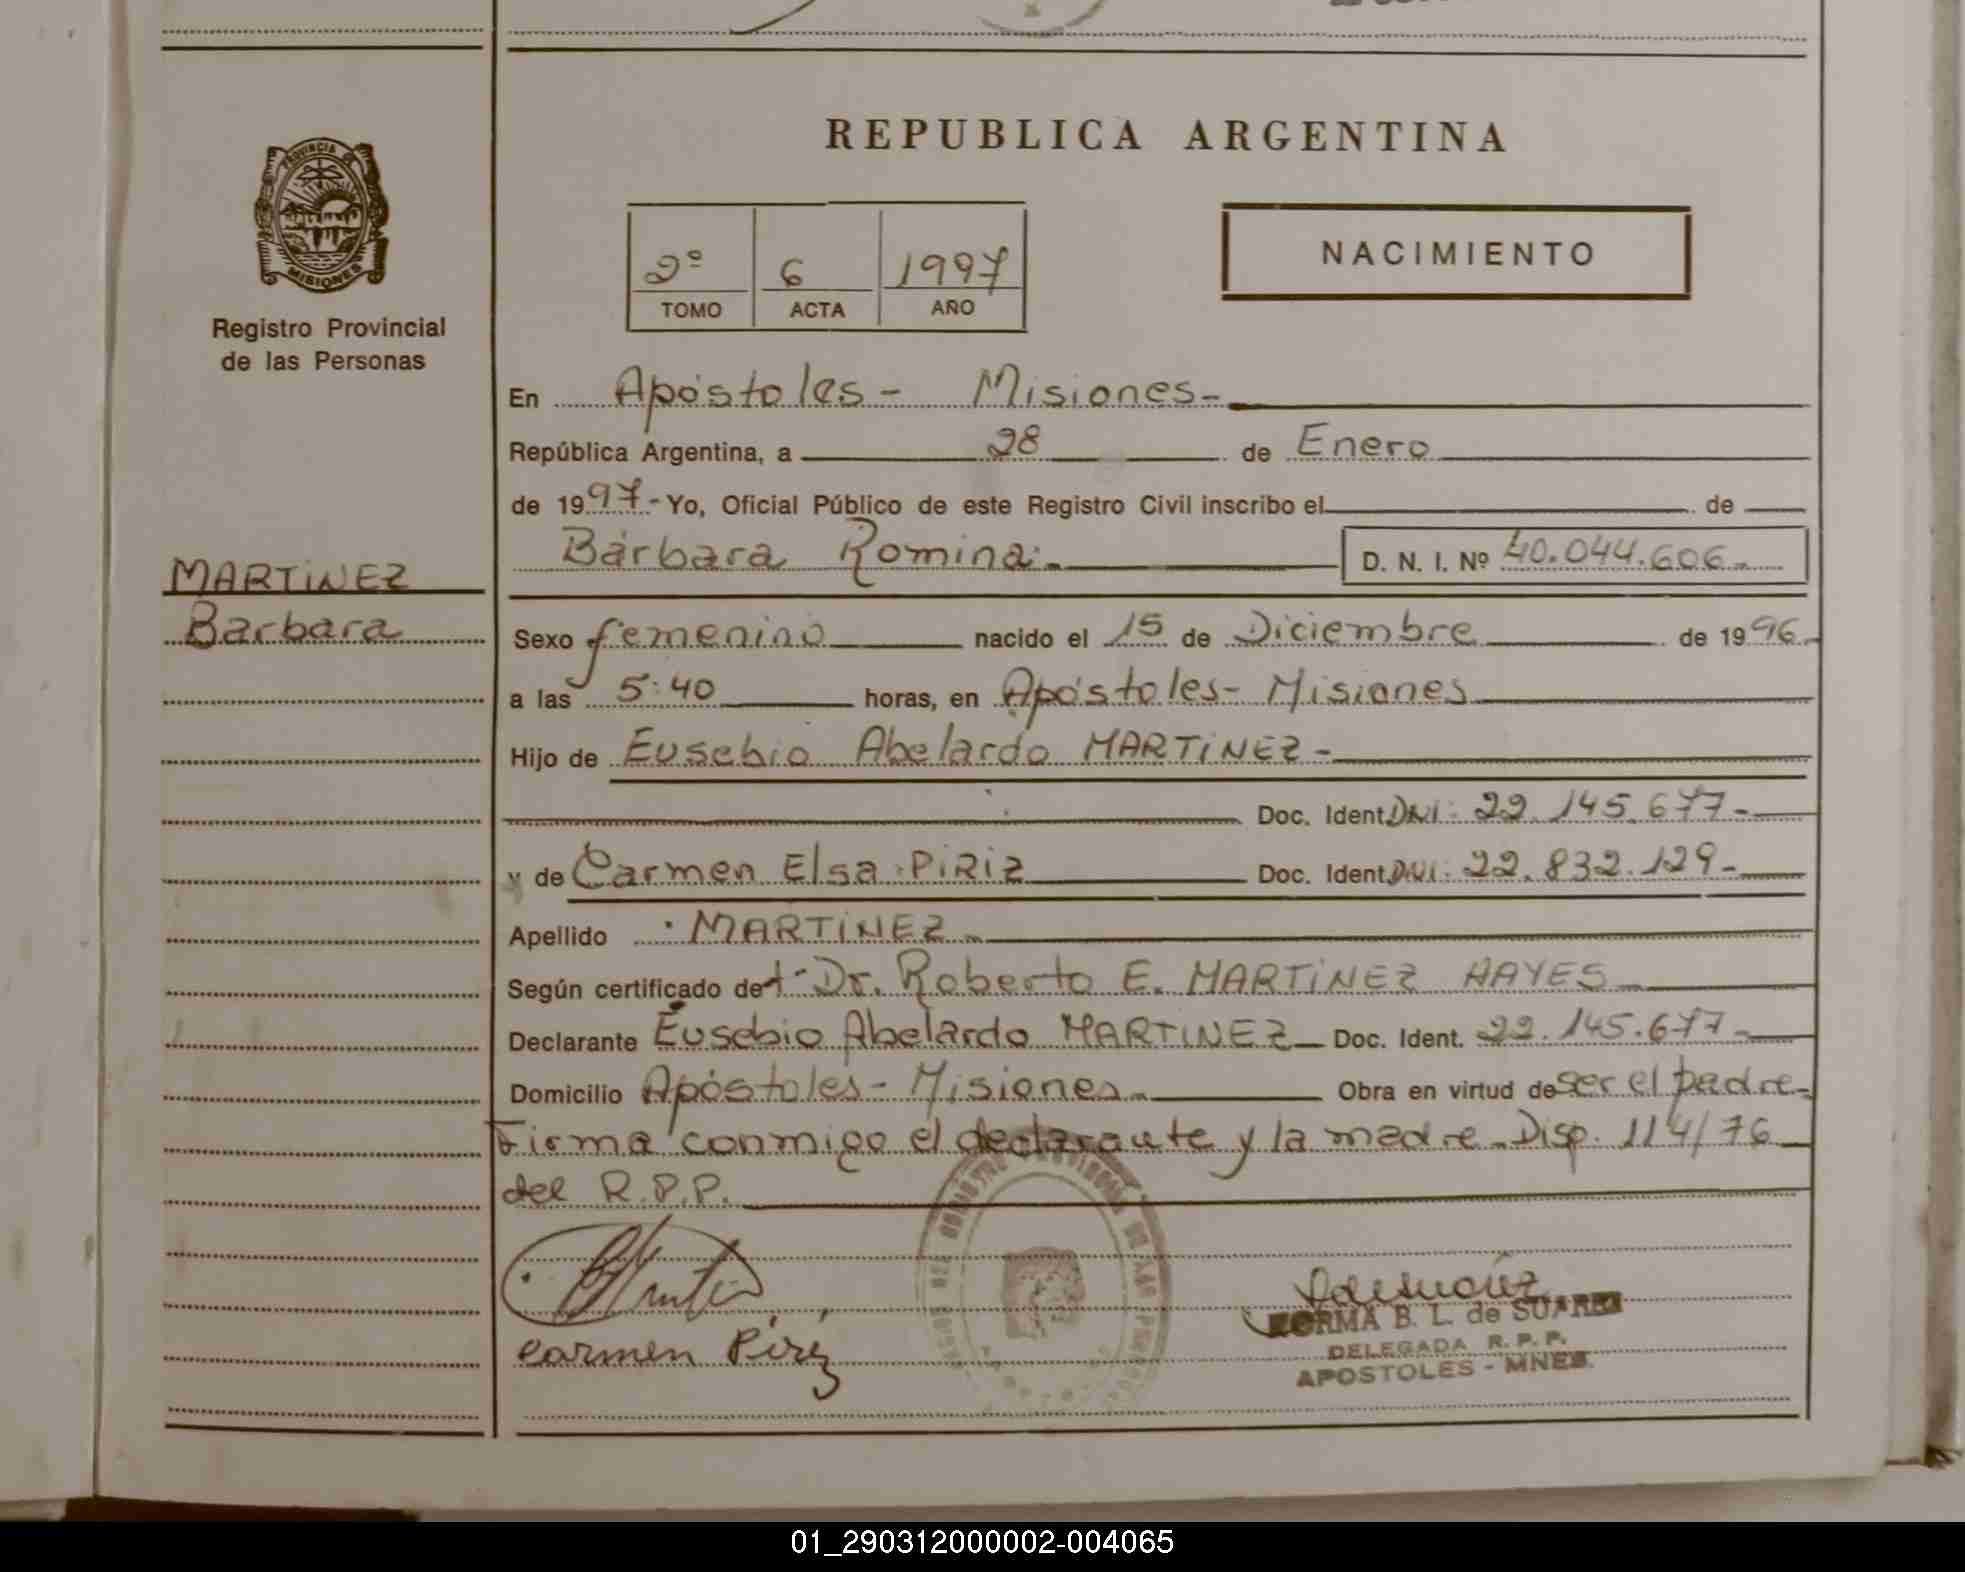 REPUBLICA ARGENTINA
PROVINCIA DE
MISIONES
Registro Provincial
de las Personas
2º 6 1997
TOMO ACTA AÑO
NACIMIENTO
En Apóstoles - Misiones -
República Argentina, a 28 de Enero
de 1997 - Yo, Oficial Público de este Registro Civil inscribo el de
Bárbara Romina.- D. N. I. Nº 40.044.606 -
MARTINEZ
Bárbara
Sexo femenino nacido el 15 de Diciembre de 1996 -
a las 5:40 horas, en Apóstoles - Misiones
Hijo de Eusebio Abelardo MARTINEZ -
Doc. Ident. DNI: 22.145.677 -
y de Carmen Elsa PiRiz Doc. Ident. DNI: 22.832.129 -
Apellido MARTINEZ -
Según certificado del Dr. Roberto E. MARTINEZ HAYES
Declarante Eusebio Abelardo MARTINEZ Doc. Ident. 22.145.677 -
Domicilio Apóstoles - Misiones Obra en virtud de ser el padre -
Firma conmigo el declarante y la madre - Disp. 114/76
del R.P.P.
Carmen Piriz
NORMA B. L. de SUAREZ
DELEGADA R. P. P.
APOSTOLES - MNES.
01_290312000002-004065